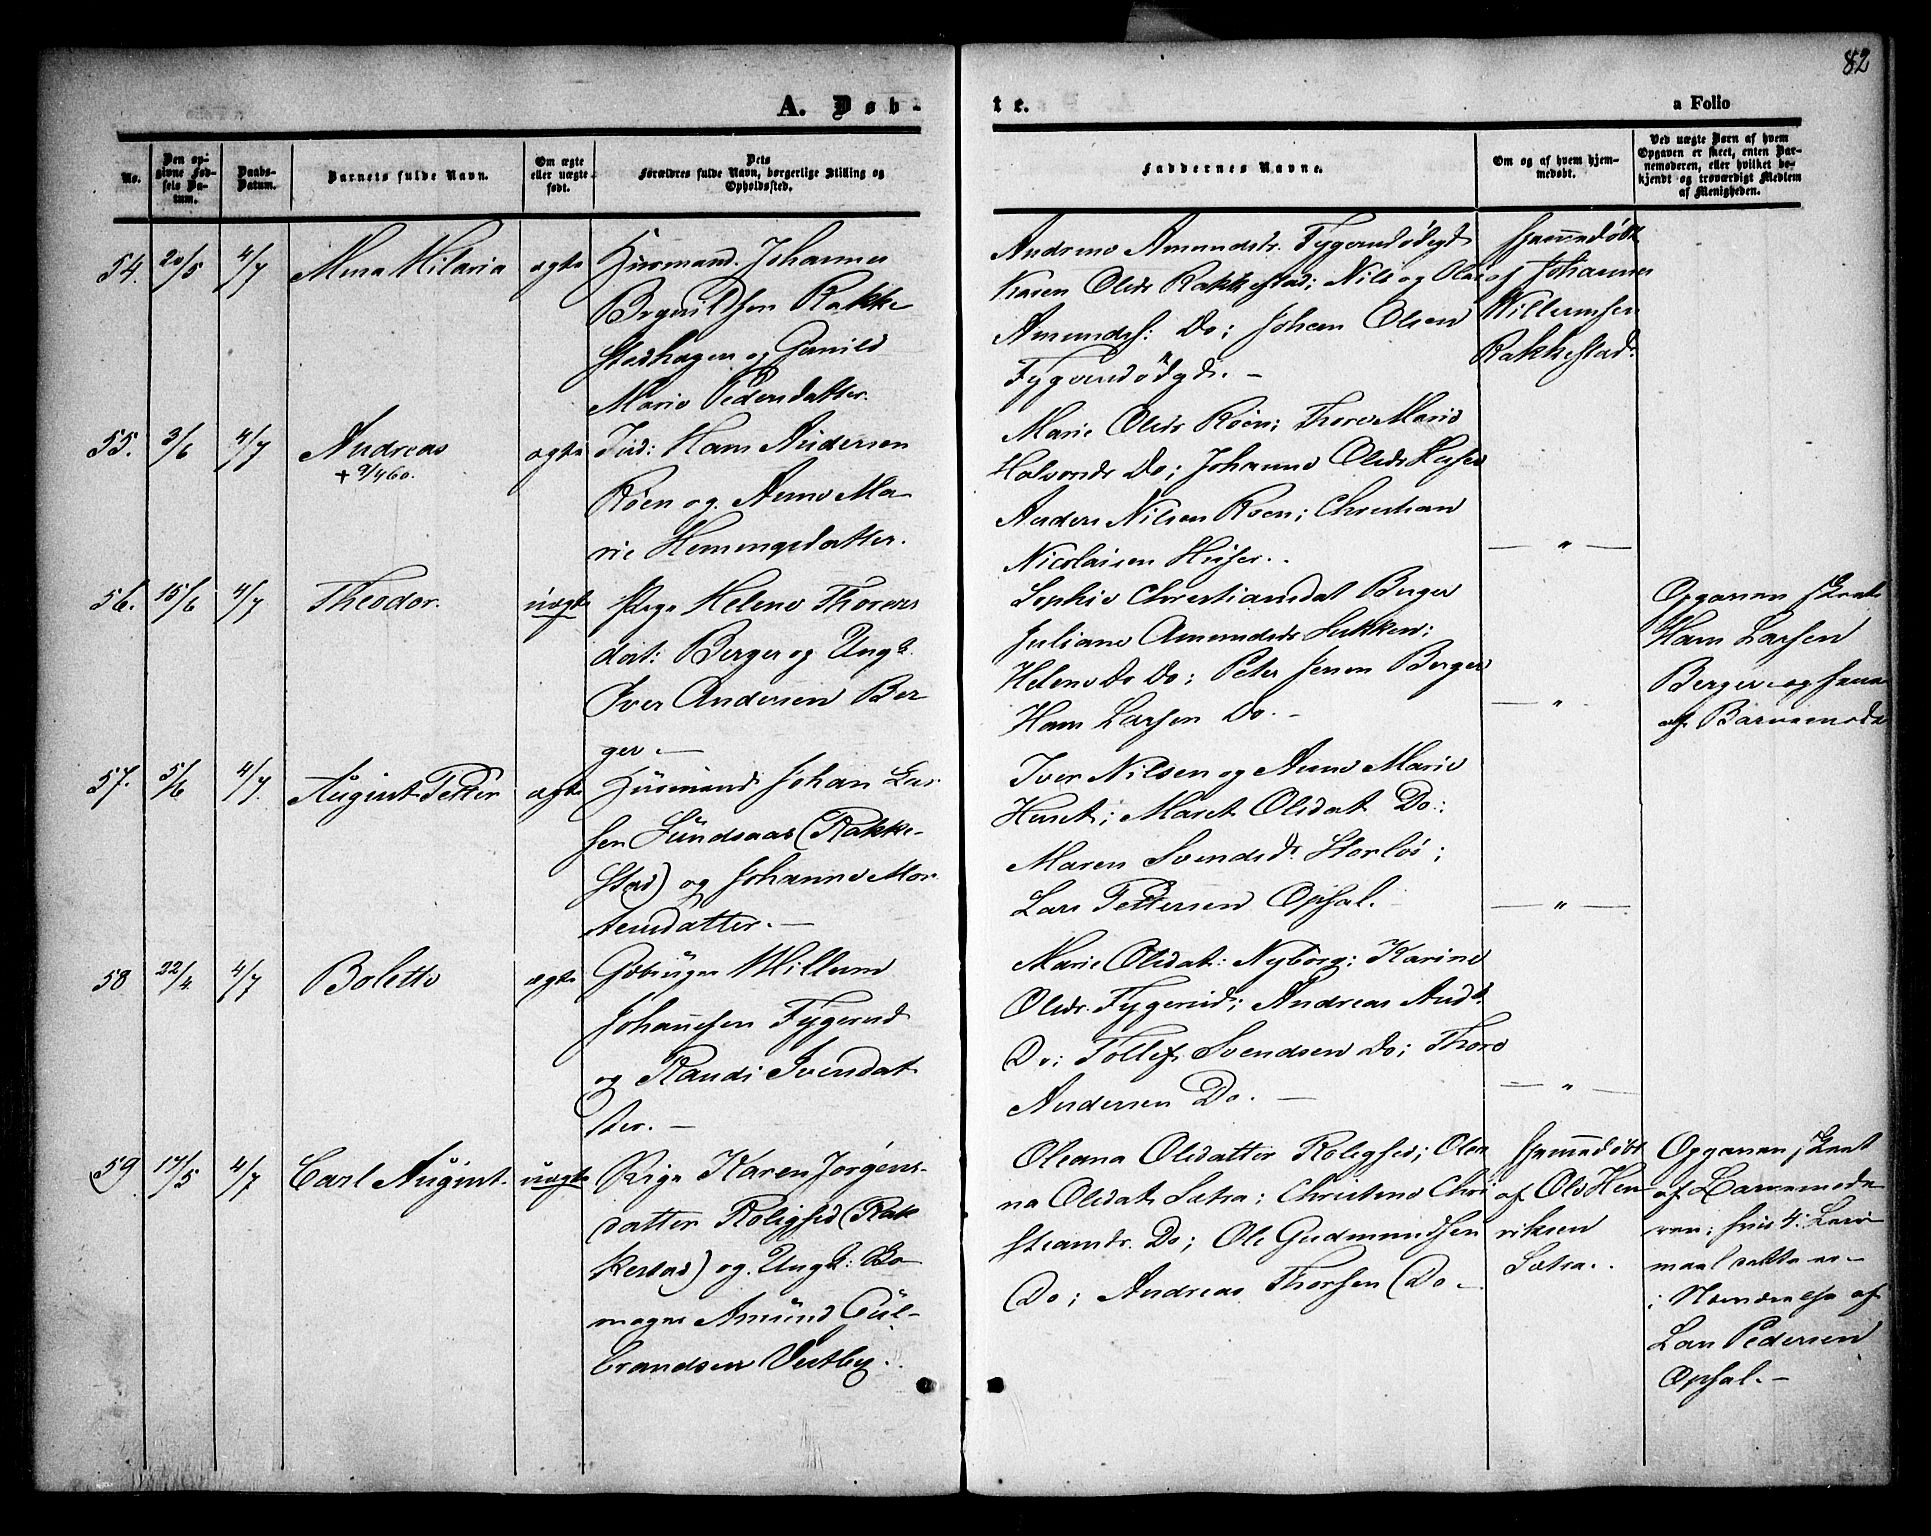 82
A. Døb-
te.
a Folio
No.
Den opgivne Fødsels Datum.
Daabs-Datum.
Barnets fulde Navn.
Om ægte eller uægte født.
Dets Forældres fulde Navn, borgerlige Stilling og Opholdssted.
Faddernes Navne.
Om og af hvem hjemmedøbt.
Ved uægte Børn af hvem Opgaven er skeet, enten Barnemoderen, eller hvilket bekjendt og troværdigt Medlem af Menigheden.
54. 20/5 4/7 Mina Milaria ægte Huusmand Johannes
Rakke
stadhagen og Gunild
Marie Pedersdatter.
Andrine Amundsdr.
Karen Olsdr Rakkestad; Nils og
Amunds: Do; Johan Olsen
Hjemmedøbt
af Johannes
Willumsen
Rakkestad.
55. 3/6 4/7 Andreas ægte Ind: Hans Andersen
+ 9/4 60.
Roen og Anne Ma
rie Hemingsdatter.
Marie Olsdr Roen; Thore Marie
Halvorsdr Do; Johanne Olsdr Huser
Anders Nilsen Roen; Christian
Nicolaisen Huser.
— " —
56. 15/6 4/7 Theodor. uægte Pige Helene Thores
dat: Berger og Ungk.
Iver Andersen Ber
ger. —
Sophie Christiansdat Berger
Juliane Amundsdr
Helene Do Do; Peter Jensen Berger
Hans Larsen Do. —
— " —
Opgaven skeet
Hans Larsen
Berger og
af Barnemode
57. 5/6 4/7 August Petter ægte Huusmand Johan Lar
sen Lundsaas (Rakke-
stad) og Johanne Mor
tensdatter. —
Iver Nilsen og Anne Marie
Huset; Maret Olsdat Do;
Maren Svendsdr.
Lars Pettersen Opsal.
— " —
58 22/4 4/7 Bolette ægte Gdbruger Willum
Johannesen Fygerud
og Randi Svendsdat
ter. —
Marie Olsdat: Nyborg; Karine
Olsdr. Fygerud; Andreas Andr.
Do; Tollef Svendsen Do; Thore
Andersen Do. —
— " —
59 17/5 4/7 Carl August. uægte Pige Karen Jørgens-
datter Rolighed (Rak
kestad) og Ungk:
Amund Gul-
brandsen Vestby.
Oleana Olsdatter Rolighed; Olea
na Olsdat Sætra; Christine Chri
stiansdr. Do; Ole Gudmundsen
Do; Andreas Thorsen Do —
Hjemmedøbt
af Ole Hen
riksen
Sætra.
Opgaven skeet
af Barnemode
ren; hvis 4. Leier
maal dette er —
i Nærværelse af
Lars Pedersen
Opsal. —